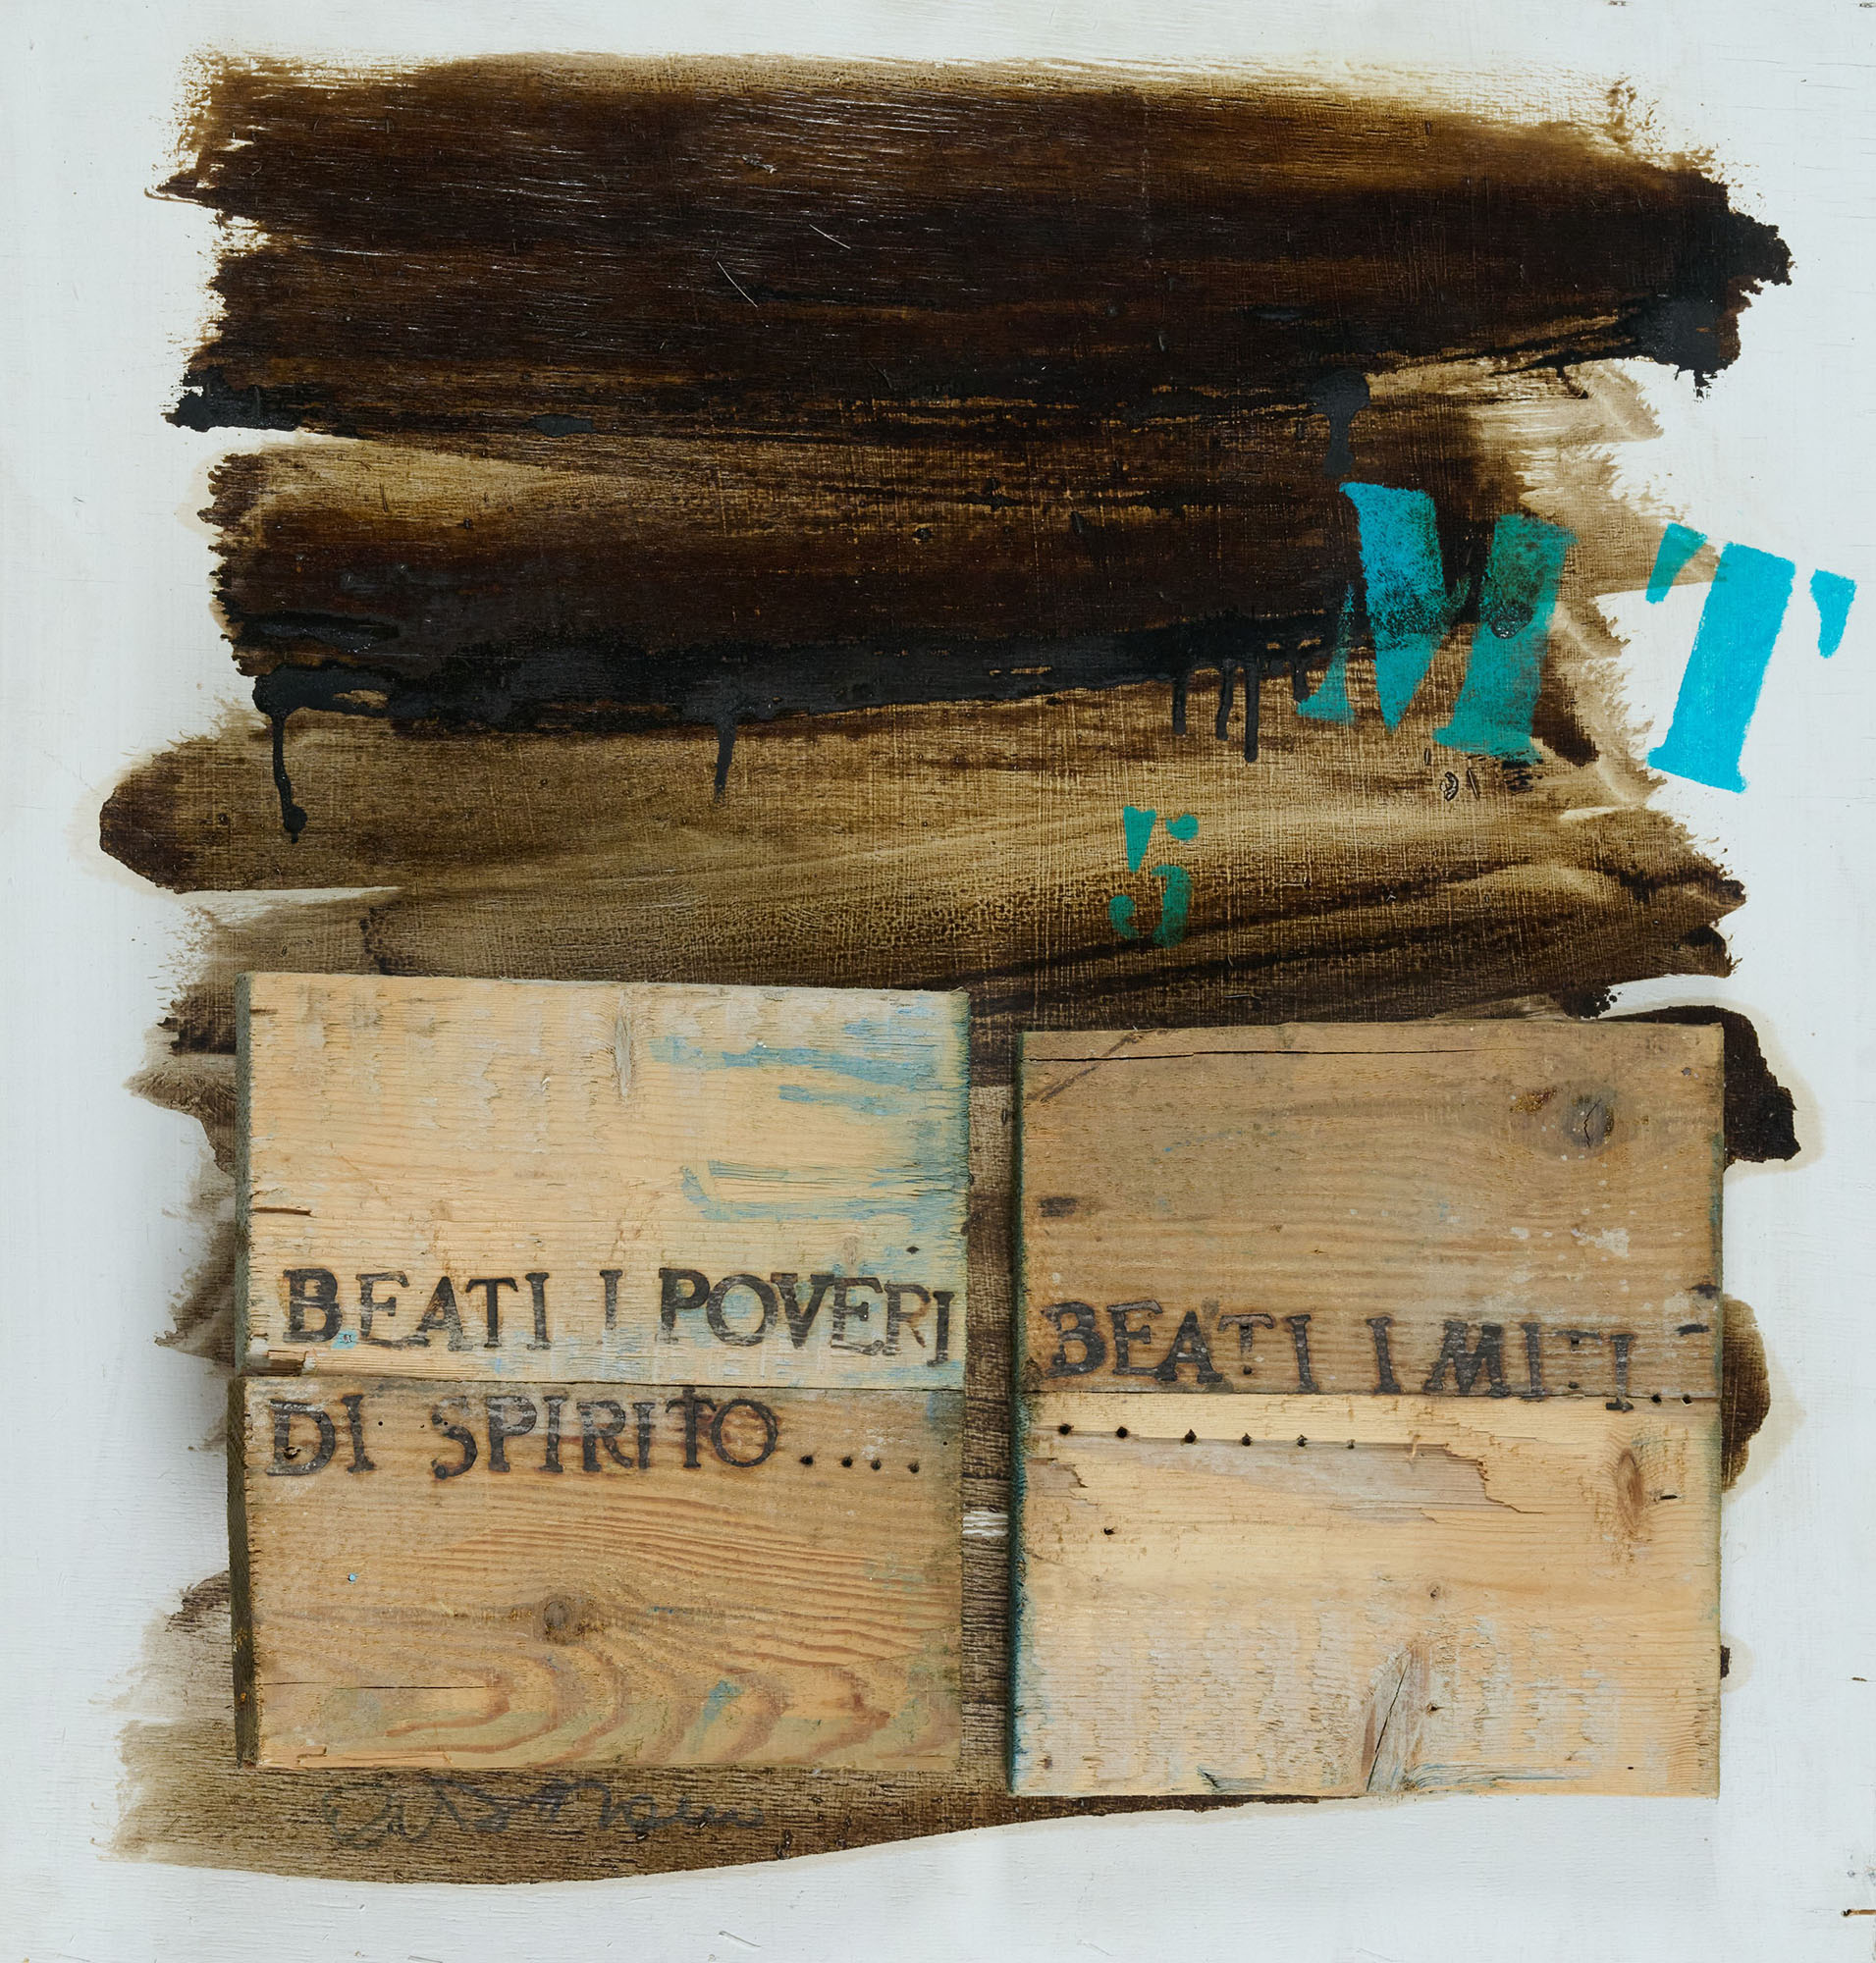 MT
5
BEATI I POVERI
DI SPIRITO....
BEATI I MITI..
......